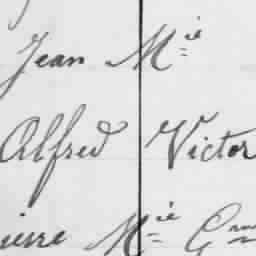 Jean Mie
Alfred Victor
ierre Mie Gme